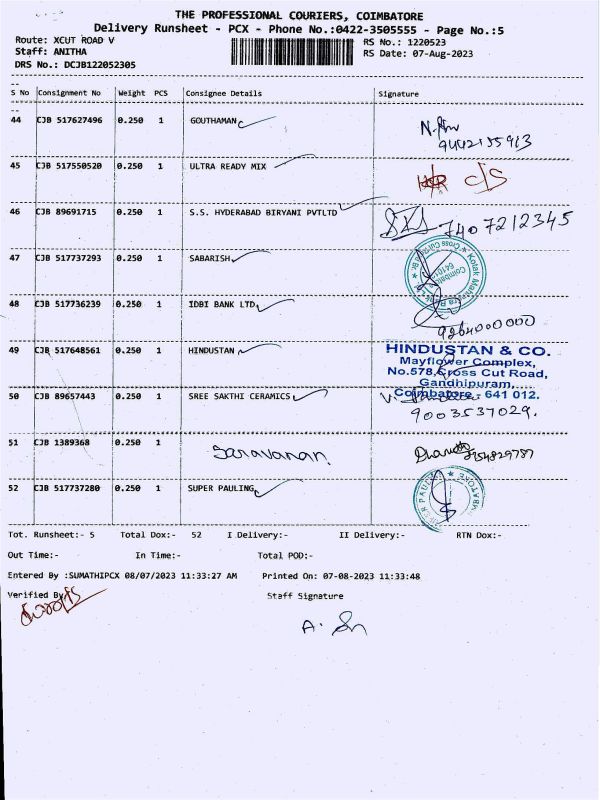 THE PROFESSIONAL COURIERS, COIMBATORE
Delivery Runsheet - PCX - Phone No.:0422-3505555 - Page No.:5
Route: XCUT ROAD V
RS No.: 1220523
Staff: ANITHA
RS Date: 07-Aug-2023
DRS No.: DCJB122052305
S No Consignment No Weight PCS Consignee Details Signature
44 CJB 517627496 0.250 1 GOUTHAMAN
9442155913
45 CJB 517550520 0.250 1 ULTRA READY MIX
46 CJB 89691715 0.250 1 S.S. HYDERABAD BIRYANI PVTLTD 7407212345
47 CJB 517737293 0.250 1 SABARISH
48 CJB 517736239 0.250 1 IDBI BANK LTD
49 CJB 517648561 0.250 1 HINDUSTAN
HINDUSTAN & CO.
Mayflower Complex,
No.578, Cross Cut Road,
Gandhipuram,
Coimbatore - 641 012.
50 CJB 89657443 0.250 1 SREE SAKTHI CERAMICS
9003537029.
51 CJB 1389368 0.250 1 Saravanan
52 CJB 517737280 0.250 1 SUPER PAULING
Tot. Runsheet:- 5 Total Dox:- 52 I Delivery:- II Delivery:- RTN Dox:-
Out Time:- In Time:- Total POD:-
Entered By :SUMATHIPCX 08/07/2023 11:33:27 AM Printed On: 07-08-2023 11:33:48
Verified By
Staff Signature